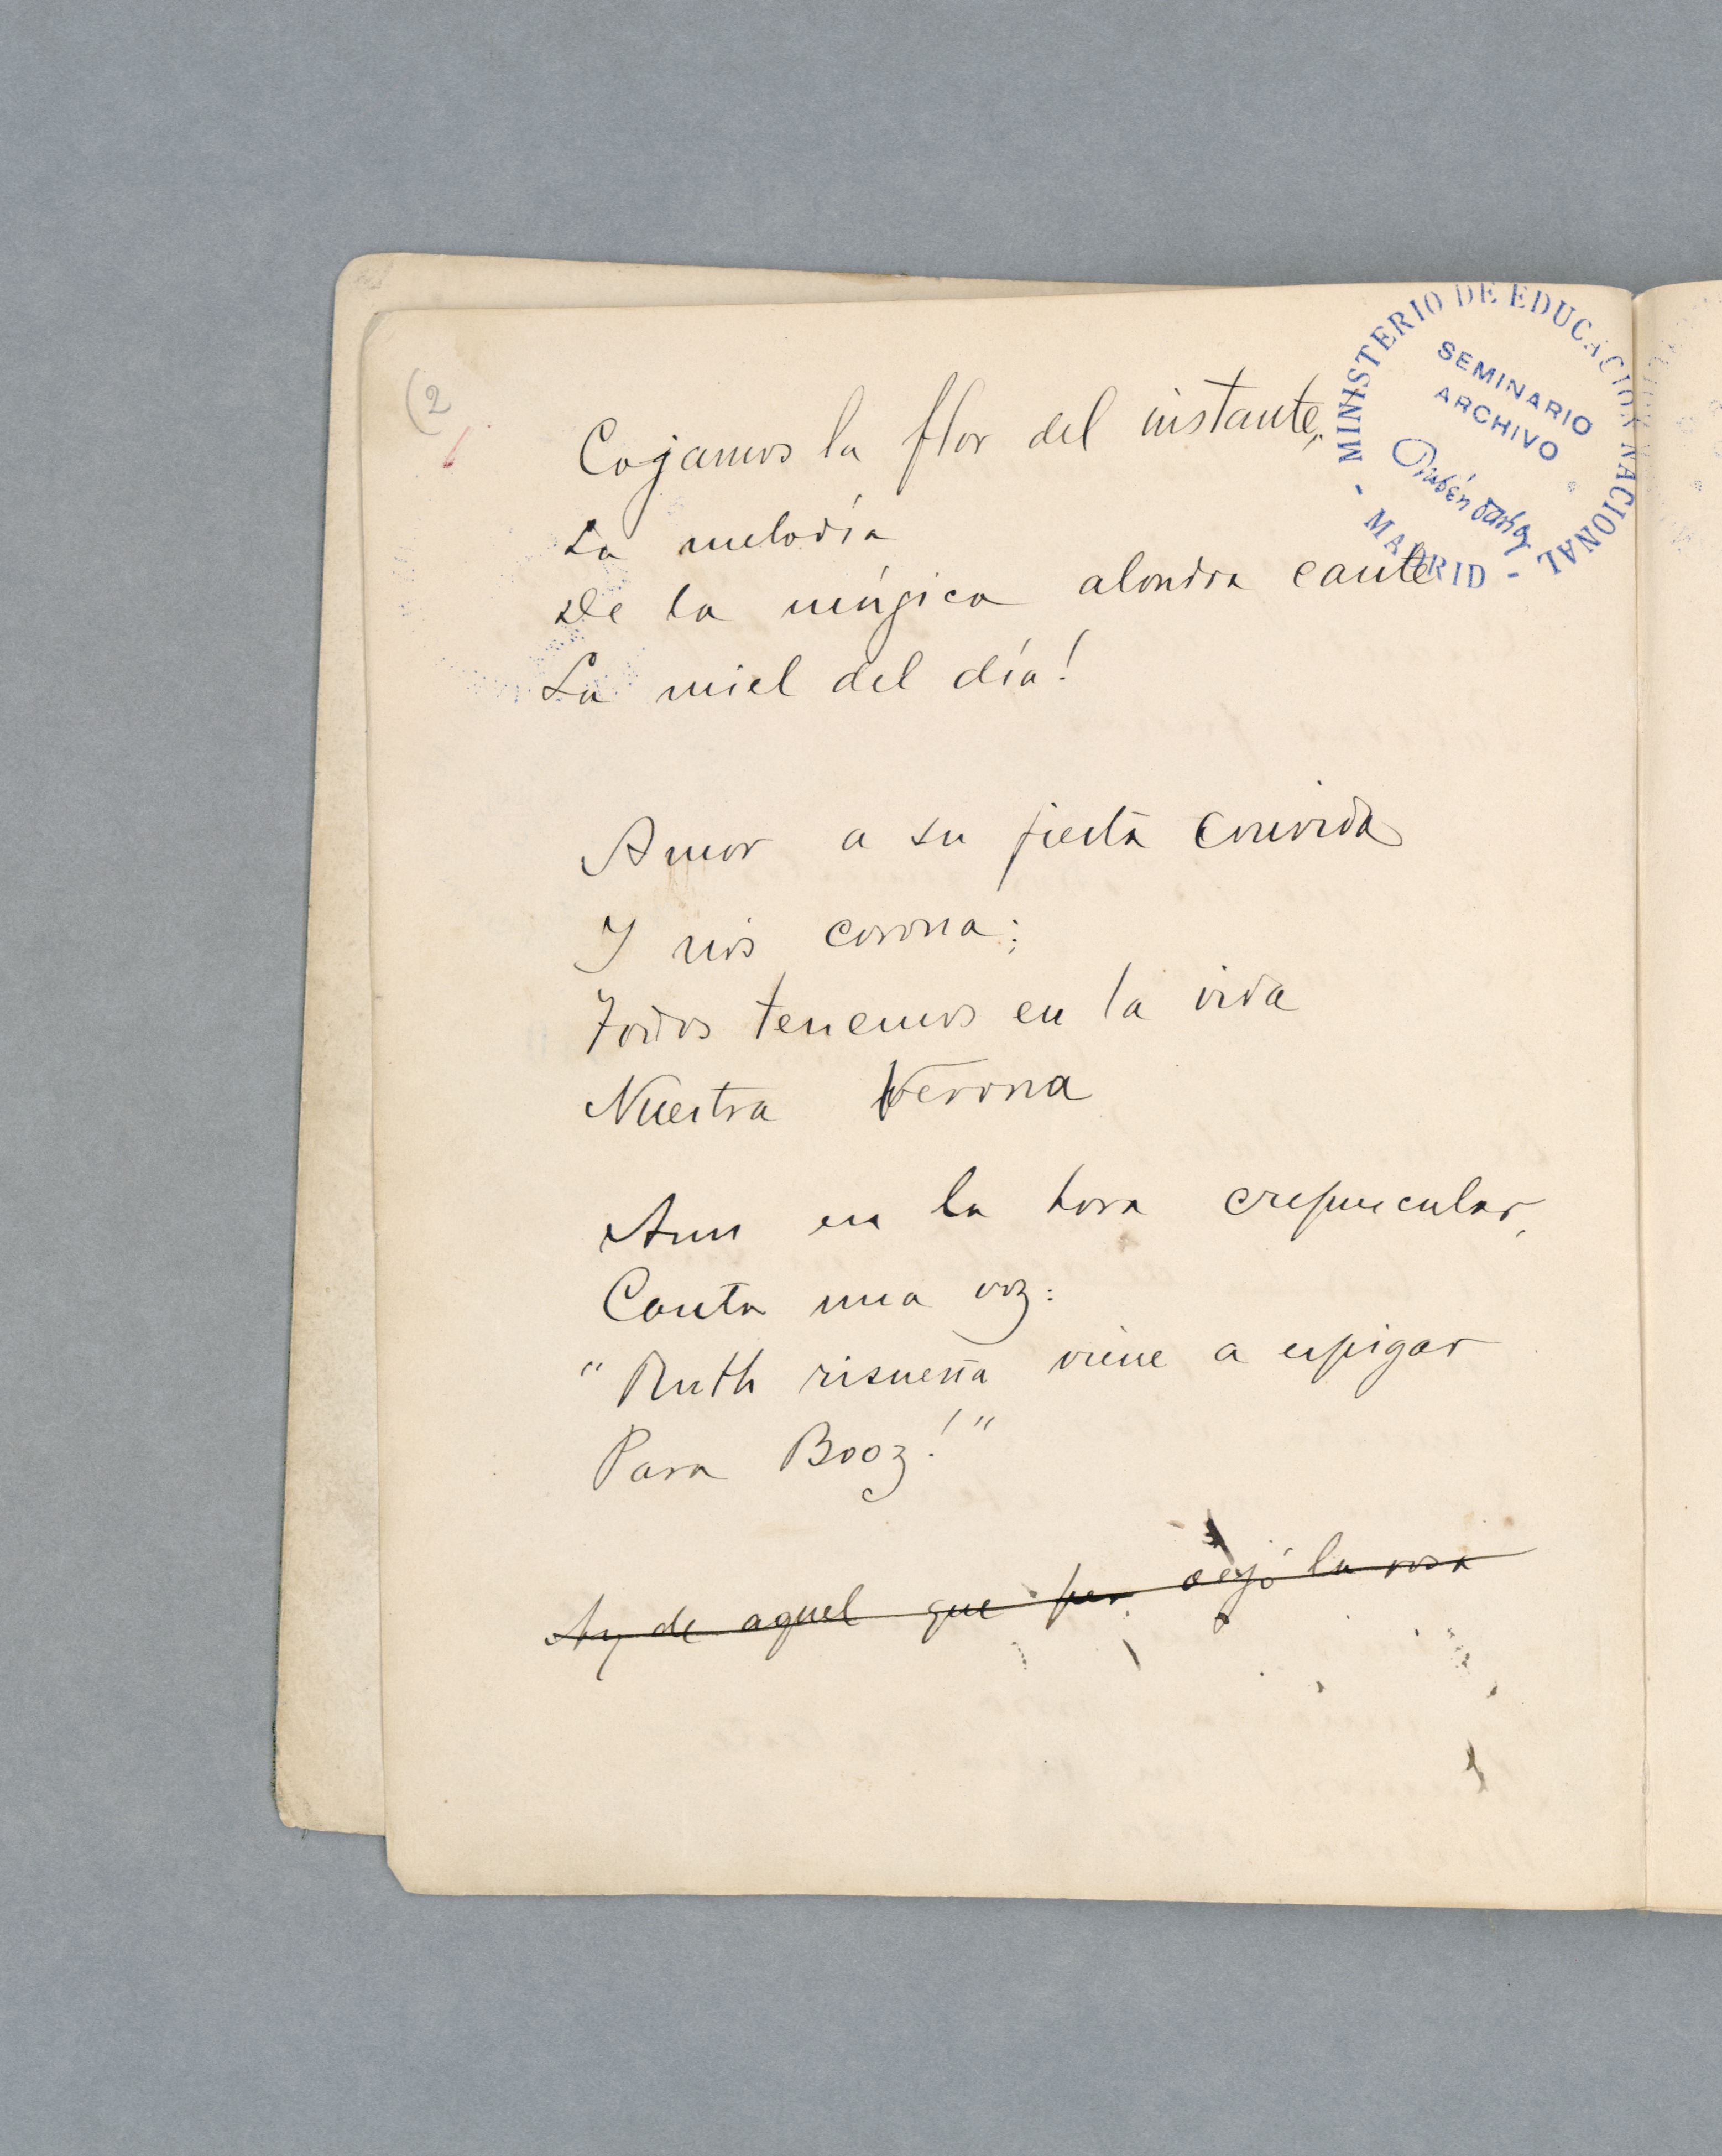 (2
MINISTERIO DE EDUCACION NACIONAL
- MADRID -
SEMINARIO
ARCHIVO
Rubén Darío
Cojamos la flor del instante;
La melodía
De la mágica alondra cante
La miel del día!
Amor a su fiesta convida
Y nos corona;
Todos tenemos en la vida
Nuestra Verona
Aun en la hora crepuscular,
Canta una voz:
"Ruth risueña viene a espigar
Para Booz!"
Ay de aquel que dejó la rosa